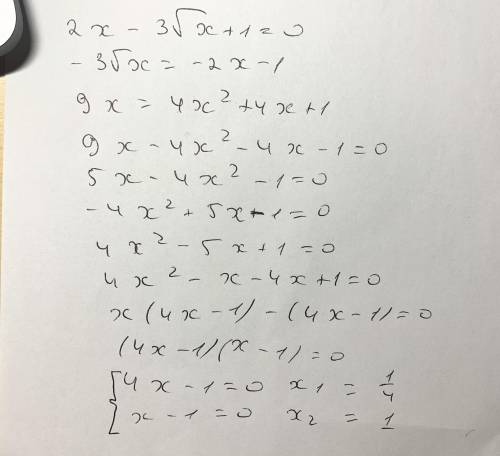 2x - 3√x + 1 = 0
- 3√x = -2x - 1
9x = 4x² + 4x + 1
9x - 4x² - 4x - 1 = 0
5x - 4x² - 1 = 0
- 4x² + 5x - 1 = 0
4x² - 5x + 1 = 0
4x² - x - 4x + 1 = 0
x(4x - 1) - (4x - 1) = 0
(4x - 1)(x - 1) = 0
[4x - 1 = 0 x₁ = 1/4
x - 1 = 0 x₂ = 1